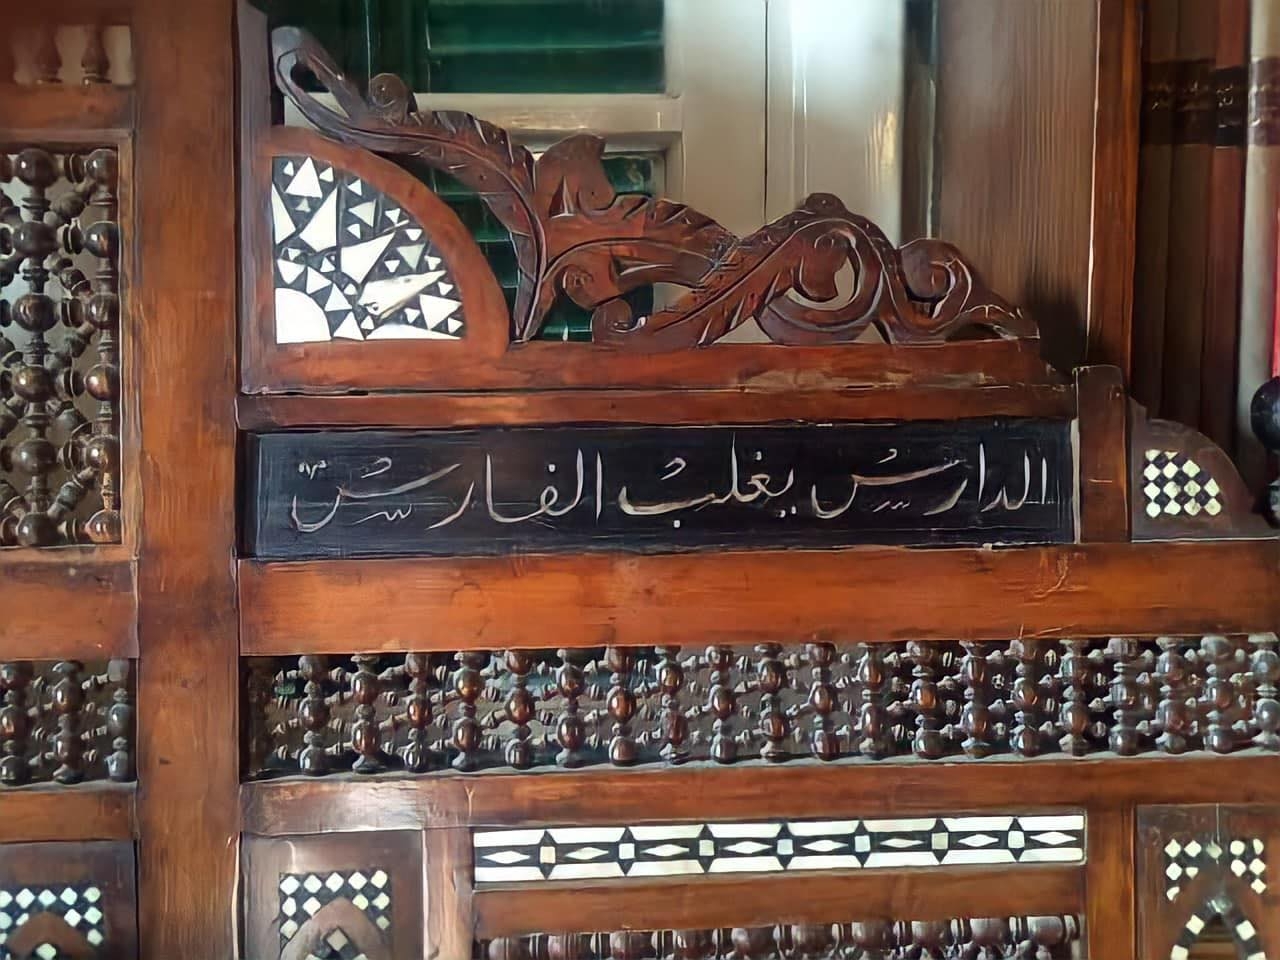 الدارسُ يغلبُ الفارسُ